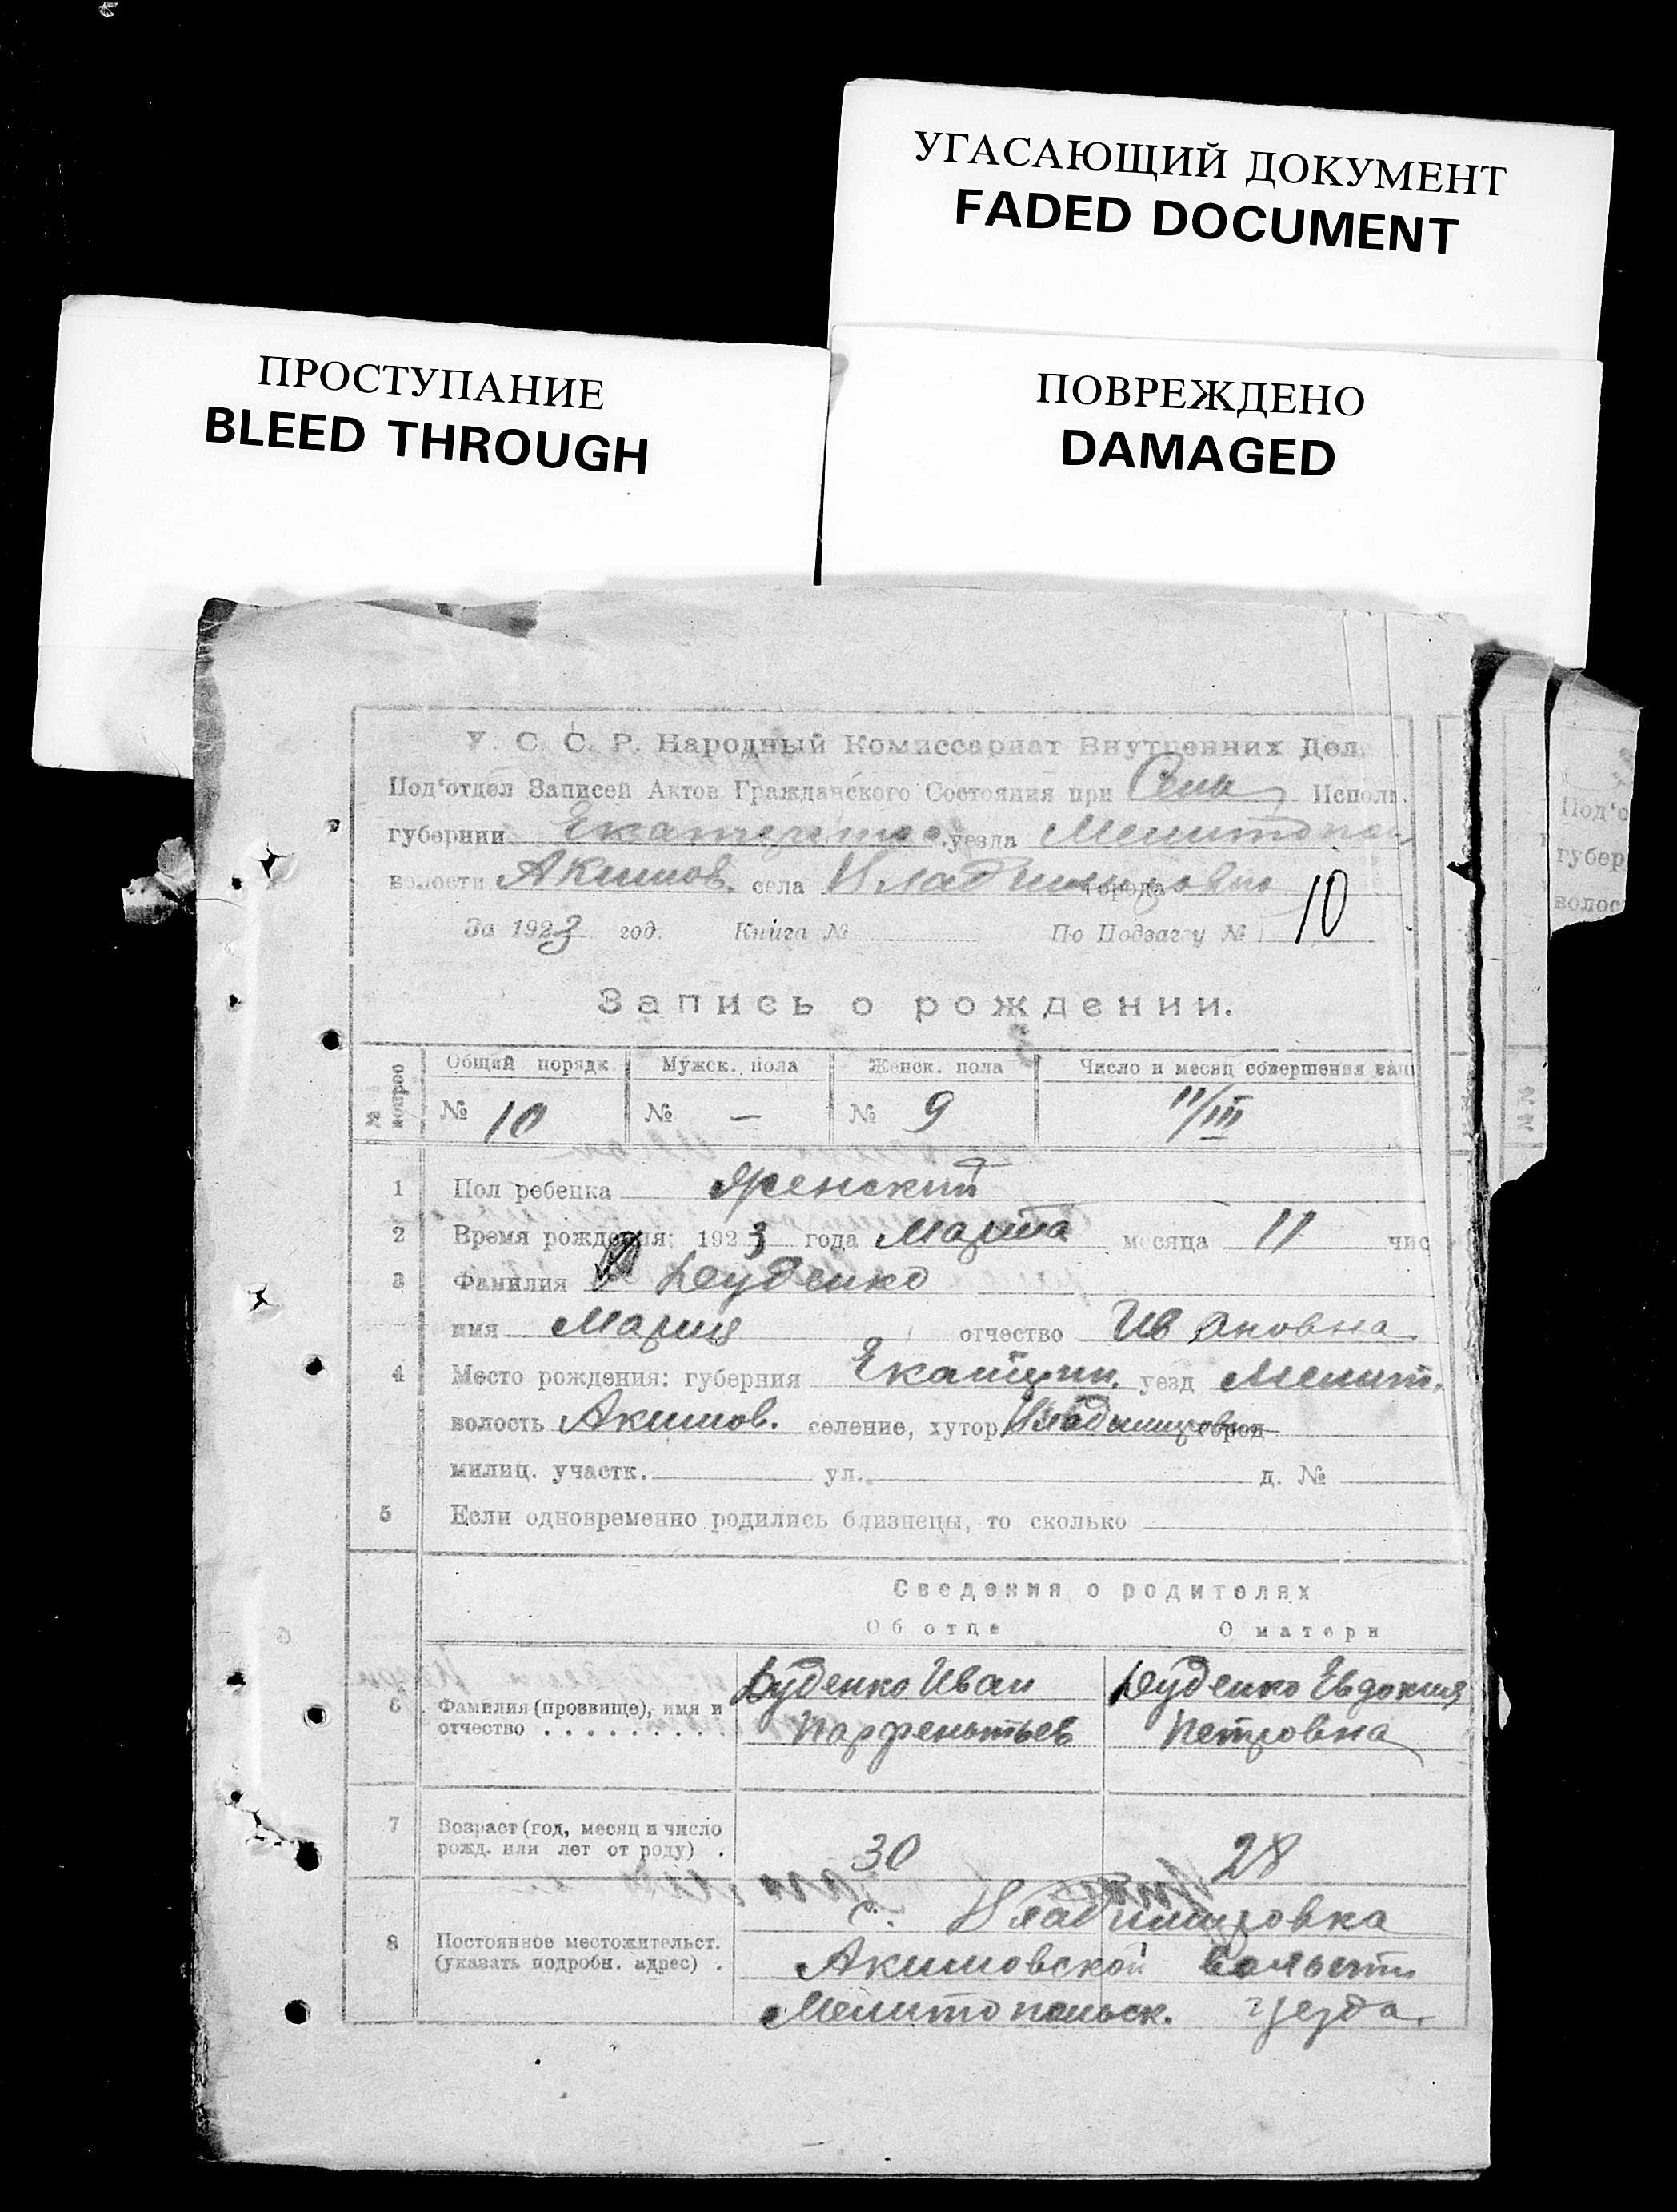 УГАСАЮЩИЙ ДОКУМЕНТ
FADED DOCUMENT
ПРОСТУПАНИЕ
BLEED THROUGH
ПОВРЕЖДЕНО
DAMAGED
У. С. С. Р. Народный Комиссариат Внутренних Дел.
Под'отдел Записей Актов Гражданского Состояния при Сель Исполк
губернии уезда Мелитопол
волости Акимов. села Владимировки города
За 1923 год. Книга № По Подзагсу № 10
Запись о рождении.
№ вопрос Общий порядк. Мужск. пола Женск. пола Число и месяц совершения запи
№ 10 № — № 9 11/III
1 Пол ребенка Женский
2 Время рождения: 1923 года Марта месяца 11 чис
3 Фамилия Деуденко
имя Мария отчество Ивановна
4 Место рождения: губерния Екатерин. уезд Мелит.
волость Акимов. селение, хутор, Владимировка
милиц. участк. ул. д. №
5 Если одновременно родились близнецы, то сколько
Сведения о родителях
Об отце О матери
6 Фамилия (прозвище), имя и отчество . . . . . . . . . Дуденко Иван Деуденко Евдокия
Парфентьев Петровна
7 Возраст (год, месяц и число рожд. или лет от роду) . 30 28
с. Владимировка
8 Постоянное местожительст. (указать подробн. адрес) . Акимовской волости
Мелитопольск. уезда.
Под'о
губер
волос
№№